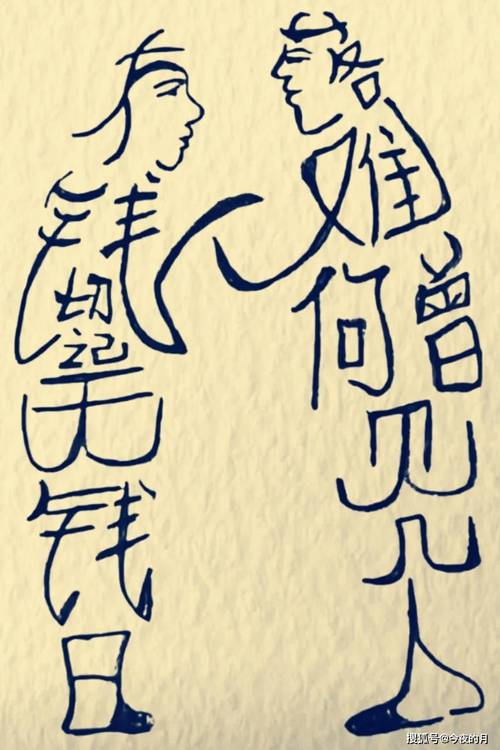 有钱切记无钱日
落难何曾见几人
搜狐号@今夜的月